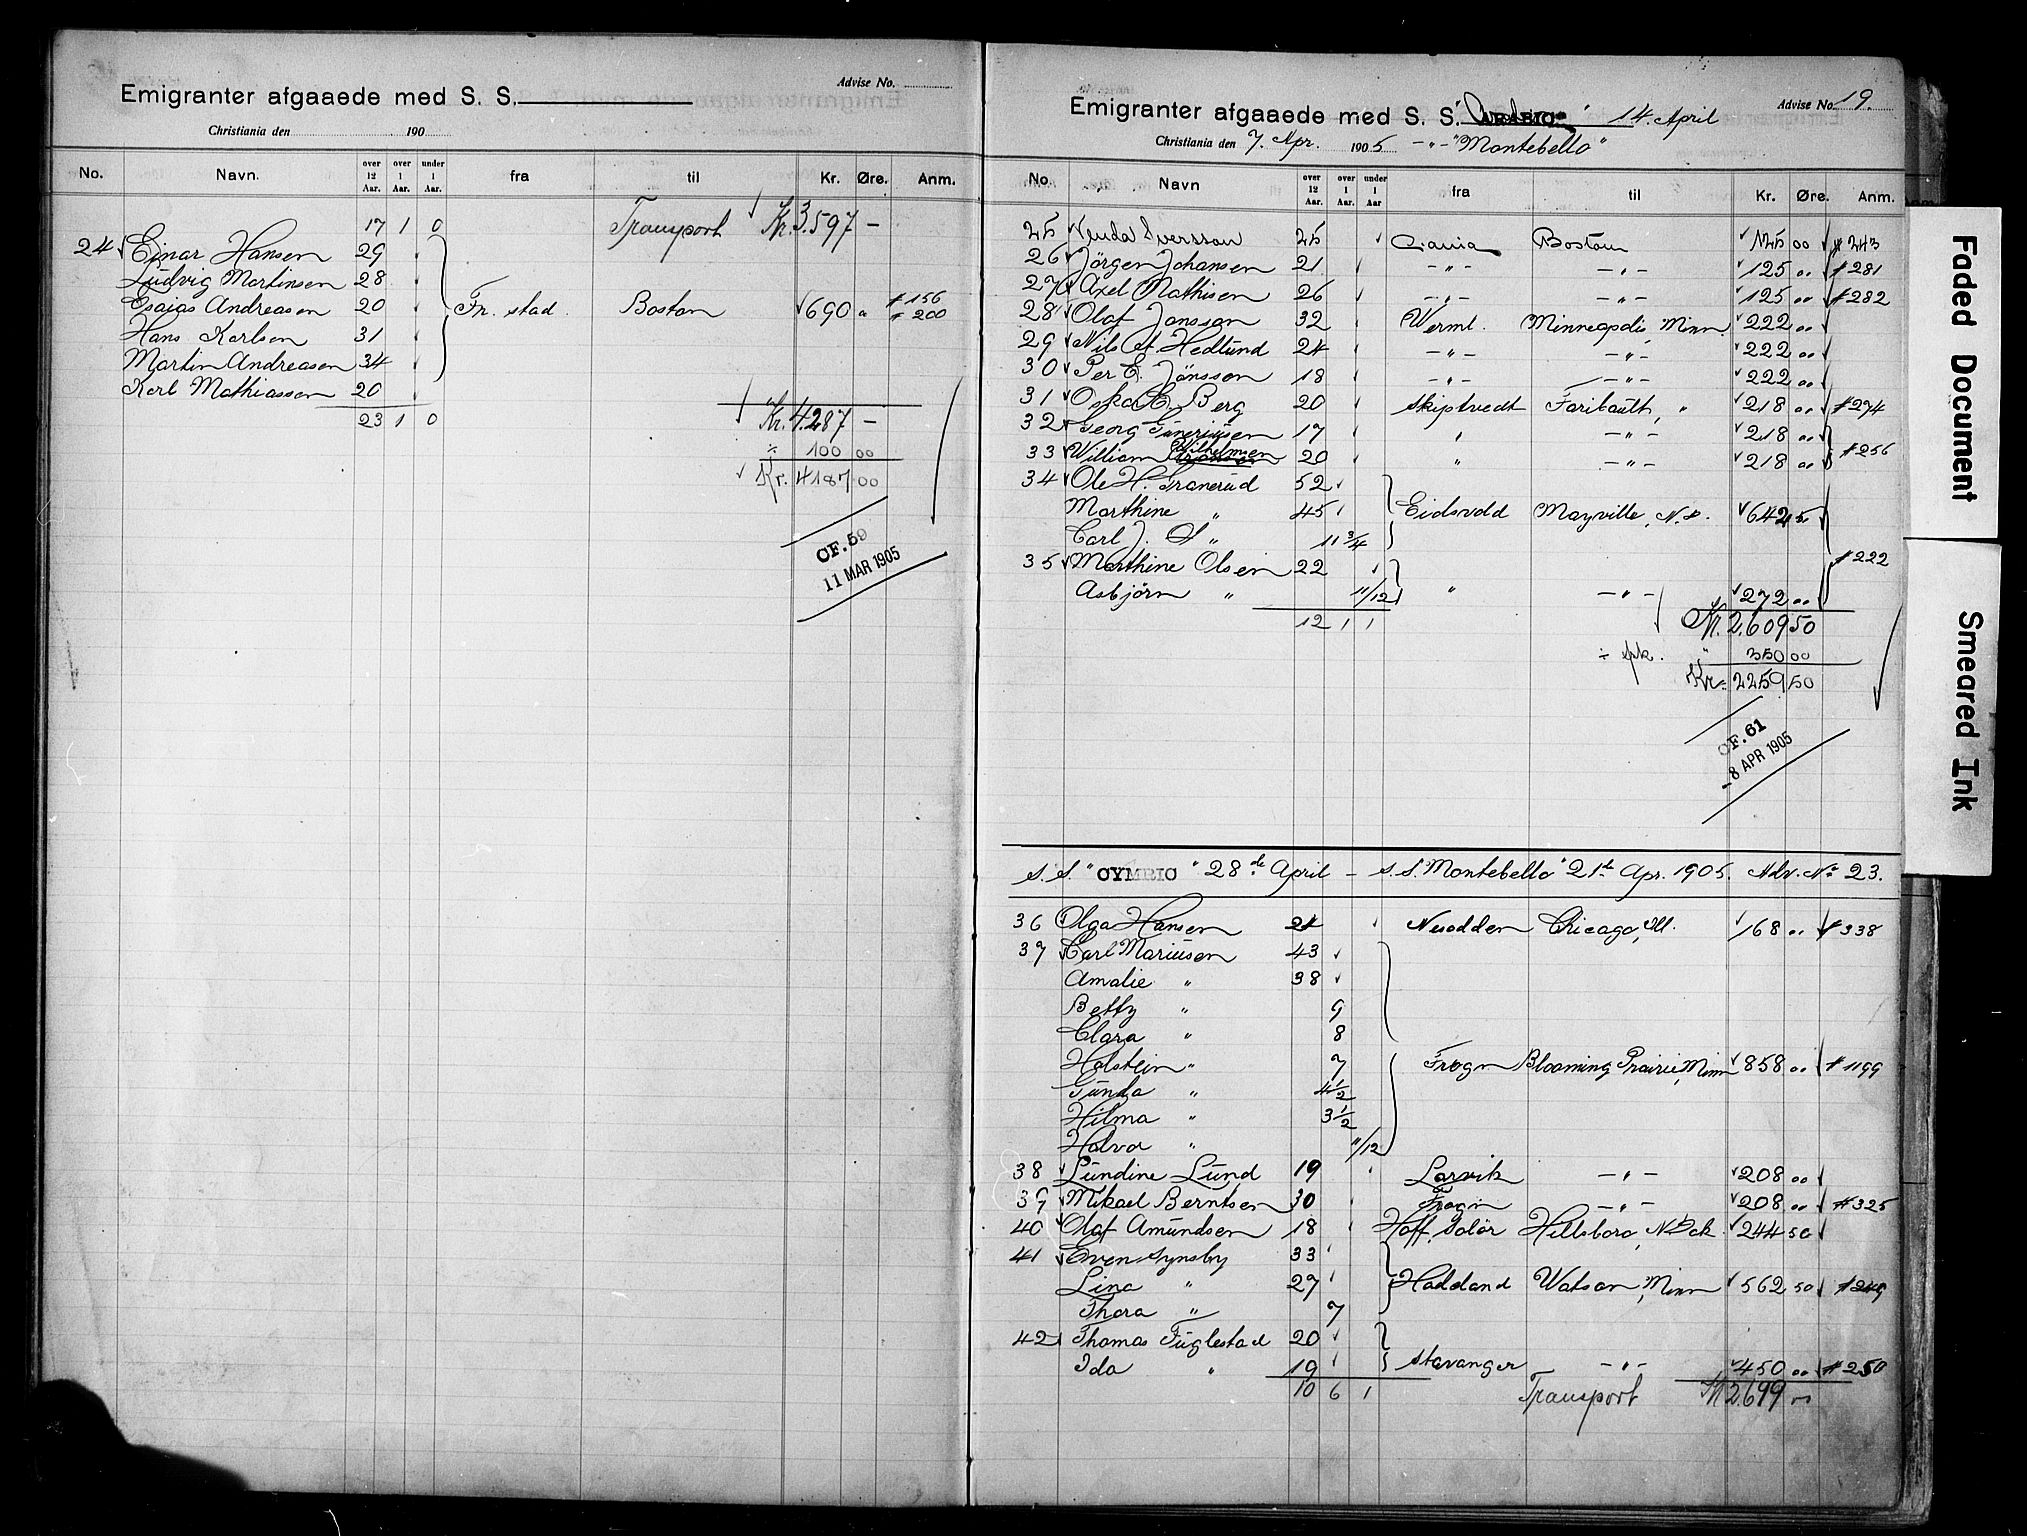 Advise No.
Emigranter afgaaede med S. S.
Christiania den 190
No. Navn. over 12 Aar. over 1 Aar. under 1 Aar. fra til Kr. Øre. Anm.
17 1 0 Transport Kr. 3.597 –
24 Einar Hansen 29
Ludvig Martinsen 28
Esaias Andreasen 20 Fr. stad. Boston 690 " # 156 " 200
Hans Karlsen 31
Martin Andreasen 34
Karl Mathiassen 20
23 1 0 Kr. 4.287 –
÷ 100 00
Kr. 4187 00
CF. 59
11 MAR 1905
Advise No. 19.
Emigranter afgaaede med S. S. 14. April
Christiania den 7. Apr. 1905 -"- "Montebello"
No. Navn over 12 Aar. over 1 Aar. under 1 Aar fra til Kr. Øre. Anm.
25 Svensson 25 Boston 125 00 # 243
26 Jörgen Johansen 21 -"- -"- 125 " # 281
27 Axel Mathisen 26 -"- -"- 125 " # 282
28 Olaf Jansson 32 Werml. Minneapolis, Minn 222 "
29 Nils A. Hedlund 24 -"- -"- 222 "
30 Per E. Jönsson 18 -"- -"- 222 "
31 Oskar E. Berg 20 Skiptvedt Faribault, " 218 " # 274
32 Georg Guneriusen 17 " -"- 218 "
33 William Wilhelmsen 20 " -"- 218 " # 256
34 Ole H. Tranerud 52
Marthine " 45 Eidsvold Mayville, N.D. 642 50
Carl J. A " 11 3/4
35 Marthine Olsen 22 # 222
Asbjørn " 11/12 " -"- 272 "
12 1 1 Kr. 2.609 50
÷ " 350 00
Kr. 2259 50
CF. 61
- 8 APR 1905
S. S. "CYMRIC" 28de April – S. S. "Montebello" 21de Apr. 1905. Adv. No 23.
36 Olga Hansen 21 Nesodden Chicago, Ill. 168 " # 338
37 Carl Mariusen 43
Amalie " 38
Betty " 9
Clara " 8
Holstein " 7 Frogn Blooming Prairie, Minn 858 " # 1199
Gunda " 4 1/2
Hilma " 3 1/2
Halvor " 11/12
38 Lundine Lund 19 Larvik -"- 208 "
39 Mikael Berntsen 30 Frogn -"- 208 " # 325
40 Olaf Amundsen 18 Hoff, Solør Hillsboro, N.Dak 244 50
41 Even Lynsby 33
Lina " 27 Hadeland Watson, Minn 562 50 # 249
Thora " 7
42 Thomas Fuglestad 20
Ida " 19 Stavanger -"- 450 " # 250
10 6 1 Transport Kr 2.699 "
Faded Document
Smeared Ink